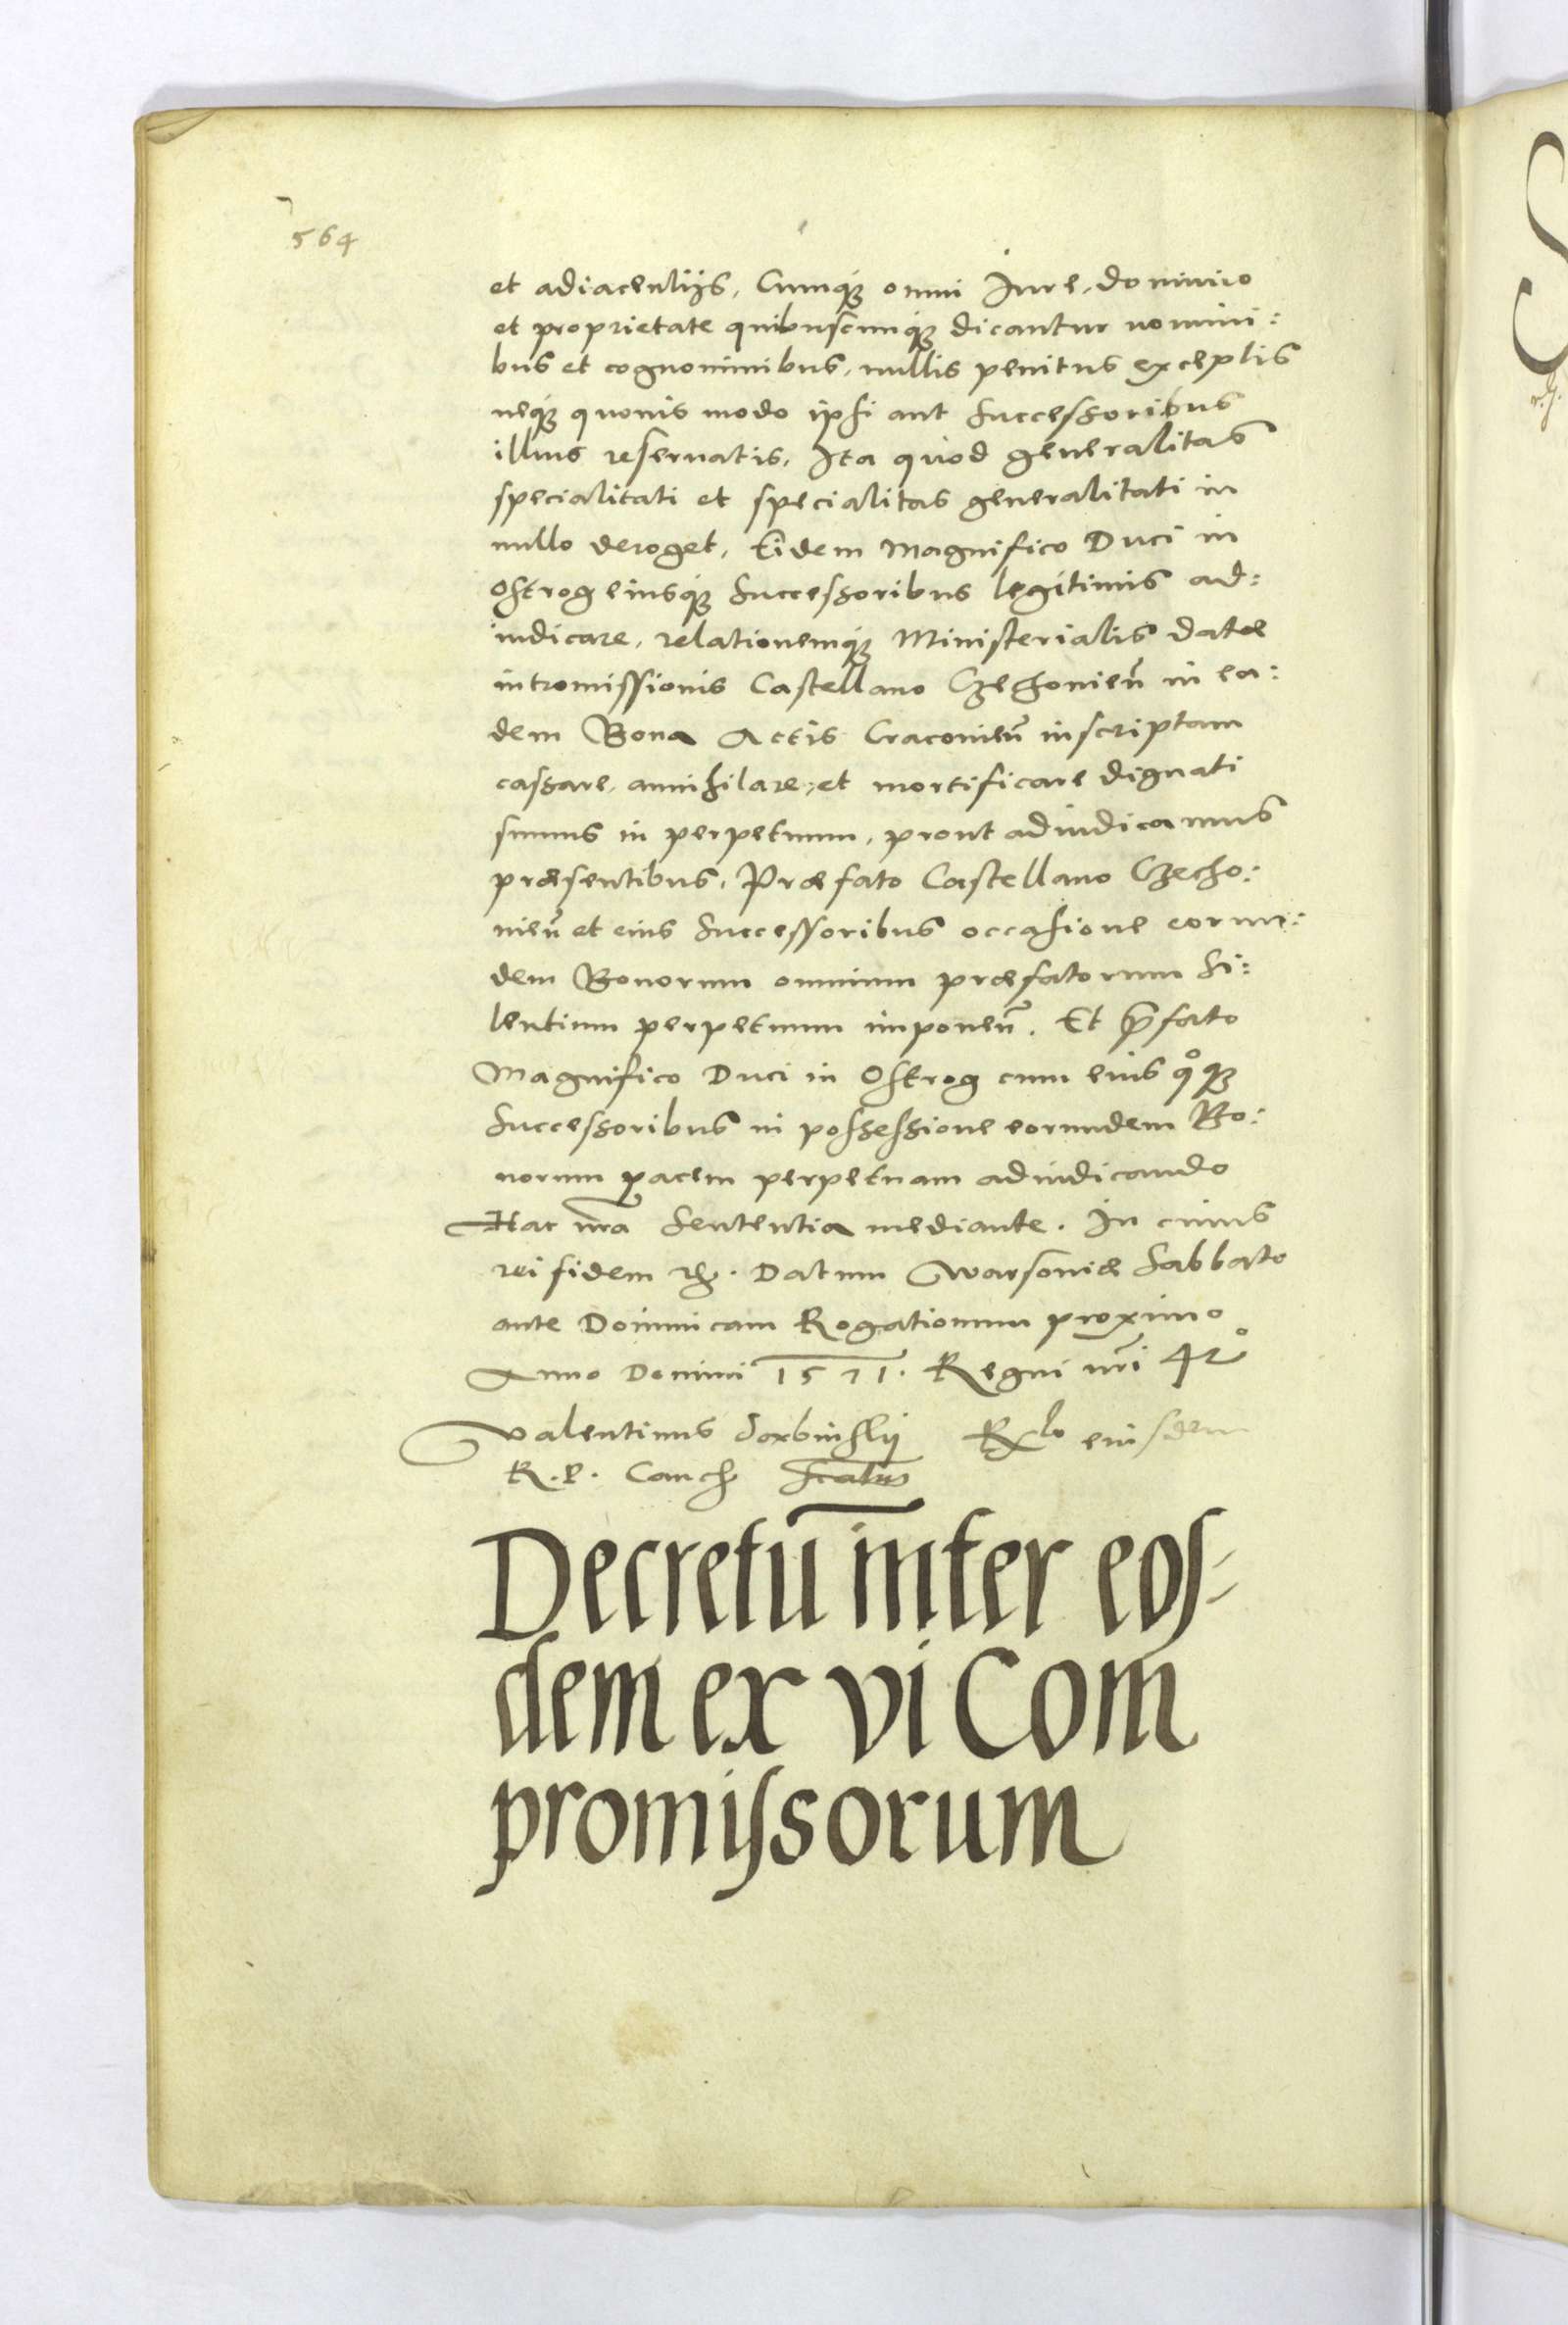 564
et adiacentijs, Cumq́ue omni Iure, dominio
et proprietate quibuscunq́ue dicantur nomini:
bus et cognominibus, nullis penitus exceptis
neq́ue quouis modo ipsi aut Successoribus
illius reseruatis, Ita quod generalitas
specialitati et specialitas generalitati in
nullo deroget, Eidem Magnifico Duci in
Ostrog eiusq́ue Successoribus legitimis ad:
iudicare, relationemq́ue Ministerialis datæ
intromissionis Castellano Czechouień in ea:
dem Bona Actis Cracouień inscriptam
cassare, annihilare, et mortificare dignati
sumus in perpetuum, prout adiudicamus
præsentibus, Præfato Castellano Czecho:
uień et eius Successoribus occasione eorun:
dem Bonorum omnium præfatorum Si:
lentium perpetuum imponeñ. Et p̃fato
Magnifico Duci in Ostrog cum eius qoque
Successoribus in possessione eorundem Bo:
norum pacem perpetuam adiudicando
Hac nr̃a Sententia mediante. In cuius
rei fidem etc. Datum Warsouiæ Sabbato
ante Dominicam Rogationum proximo
Anno Domini 1571. Regni nr̃i 42°
Valentinus Dęxbinskij Rlo eiusdem
R. P. Canch
Decretū inter eos-
dem ex vi Com
promissorum